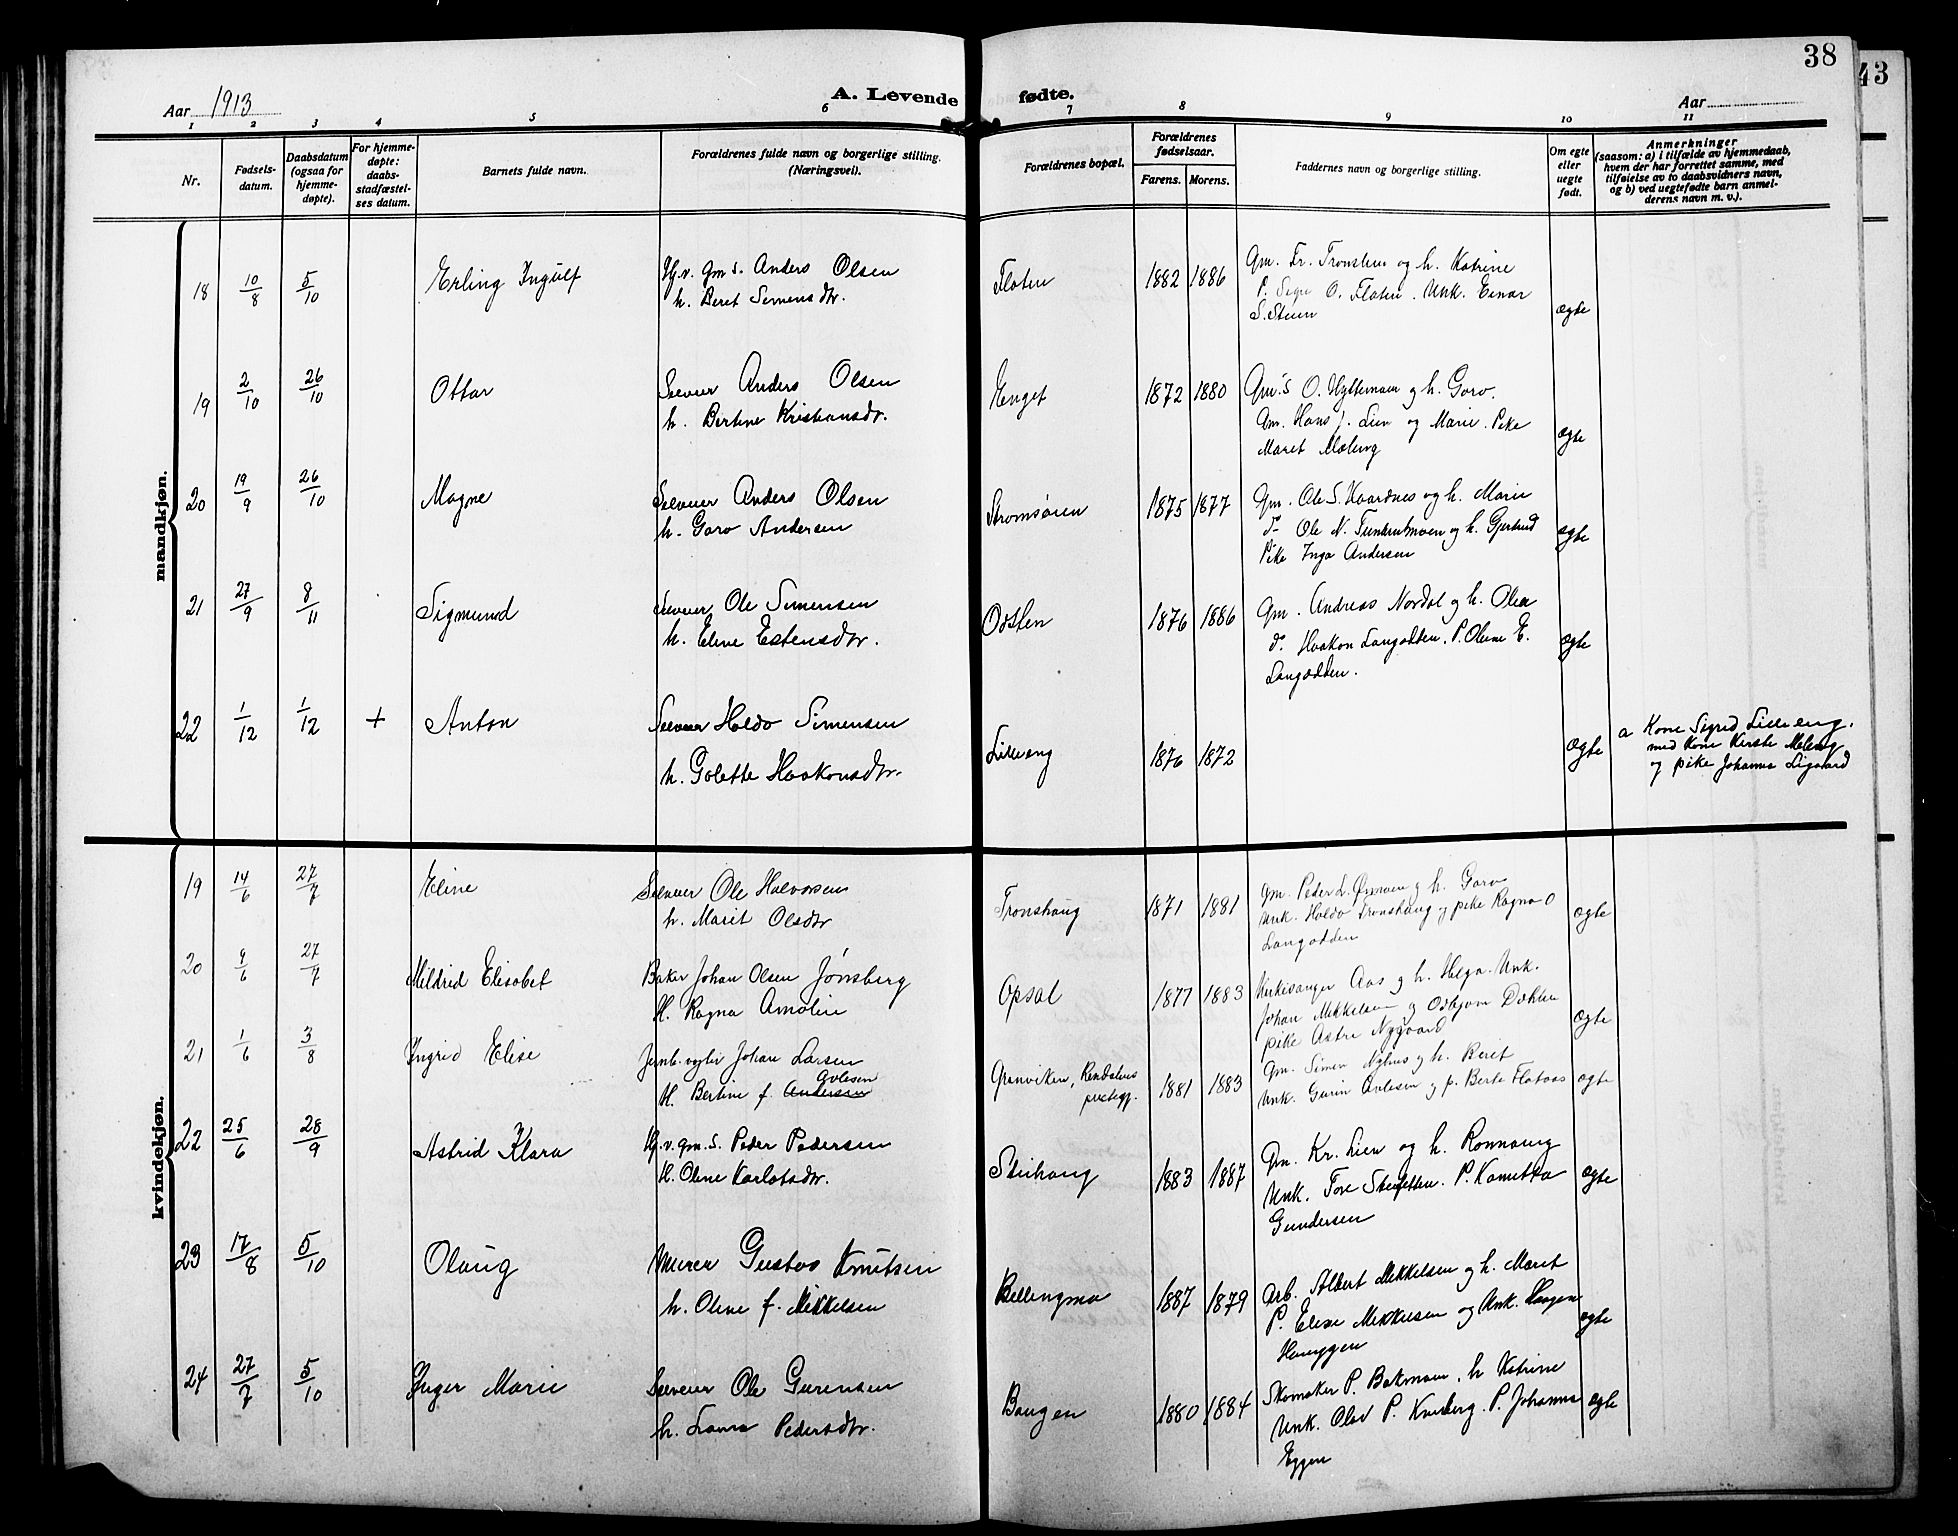 38
43
Aar 1913
A. Levende fødte.
Aar
1 2 3 4 5 6 7 8 9 10 11
Nr.
Fødsels-
datum.
Daabsdatum
(ogsaa for
hjemme-
døpte).
For hjemme-
døpte:
daabs-
stadfæstel-
ses datum.
Barnets fulde navn.
Forældrenes fulde navn og borgerlige stilling.
(Næringsvei).
Forældrenes bopæl.
Forældrenes
fødselsaar.
Farens. Morens.
Faddernes navn og borgerlige stilling.
Om egte
eller
uegte
født.
Anmerkninger
(saasom: a) i tilfælde av hjemmedaab,
hvem der har forrettet samme, med
tilføielse av to daabsvidners navn,
og b) ved uegtefødte barn anmel-
derens navn m. v.).
mandkjøn.
18 10/8 5/10 Erling Ingulf
Hj.v. gm s. Anders Olsen
h. Beret Simensdtr.
Floten 1882 1886
Gm. Fr. Tronslien og h. Katrine
P. O. Floten. Unk. Einar
S. Steen
ægte
19 2/10 26/10 Ottar
Selveier Anders Olsen
h. Bertine Kristiansdr.
Enget 1872 1880
Gm. S O. Hyttemoen og h. Goro.
Gm. Hans J. Lien og Marie. Pike
Maret Mæleng
ægte
20 19/9 26/10 Magne
Selveier Anders Olsen
h. Goro Andersen
Strømsøien 1875 1877
Gm. Ole S. Haardnes og h. Marie
do Ole N. og h. Gjertrud
Pike Inga Andersen
ægte
21 27/9 8/11 Sigmund
Selveier Ole Simensen
h. Eline Estensdtr.
Odden 1876 1886
Gm. Andreas Nordal og h. Olea
do. Haakon Langodden. P. Oline E.
Langodden.
ægte
22 1/12 1/12 + Anton
Selveier Holdo Simensen
h. Golette Haakonsdtr.
Lilleeng 1876 1872
ægte
a Kone Sigrid Lilleeng.
med Kone Kirste Meleng
og pike Johanna Ligaard
kvindekjøn.
19 14/6 27/7 Eline
Selveier Ole Halvorsen
h. Marit Olsdtr
Tronshaug 1871 1881
Gm. Peder L. Øimoen og h. Goro
Unk. Holdo Tronshaug og pike Ragna O
Langodden
ægte
20 9/6 27/7 Mildrid Elisabet
Baker Johan Olsen Jønsberg
H. Ragna Amalie
Opsal 1877 1883
Kirkesanger Aas og h. Helga. Unk.
Johan Mikkelsen og Odbjørn Dæhlen
pike Astri Nygaard
ægte
21 1/6 3/8 Ingrid Elise
Jernb.vogter Johan Larsen
H. Bertine f. Andersen Avlesen
Granviken, Rendalens
prestegj. 1881 1883
Gm. Simen Nyhus og h. Berit
Unk. Gurin Avlesen og p. Berte Flotaas
ægte
22 25/6 28/9 Astrid Klara
Hj.v. gm. S. Peder Pedersen
H. Oline Karlotsdtr.
Steihaug 1883 1887
Gm. Kr. Lien og h. Ronnaug
Unk. Tore P. Kamilla
Gundersen
ægte
23 17/8 5/10 Olaug
Murer Gustav Knutsen
h. Oline f. Mikkelsen
Bellingmo 1887 1879
Arb. Albert Mikkelsen og h. Marit
P. Elise Mikkelsen og Unk. Haagen
Hanyggen
ægte
24 27/7 5/10 Inger Marie
Selveier Ole Gurensen
h. Laura Pedersdtr.
Baugen 1880 1884
Skomaker P. Bakmoen, h Katrine
Unk. Olav P. Kvisberg. P. Johanna
Eggen
ægte